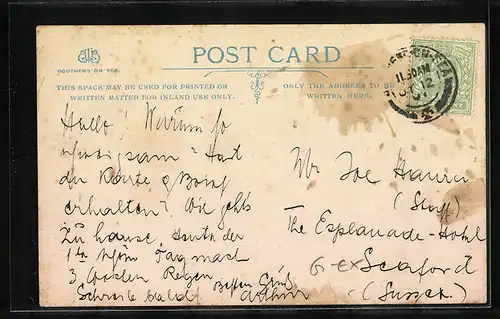 POST CARD
ON SEA.
THIS SPACE MAY BE USED FOR PRINTED OR
WRITTEN MATTER FOR INLAND USE ONLY.
ONLY THE ADDRESS TO BE
WRITTEN HERE.
11.30AM
12
Hallo! Warum so
schweigsam? Hast
du Karte & Brief
erhalten? Wie gehts
zu hause, Heute der
1te schöne Tag nach
3 Wochen Regen
Schreibe bald Besten Gruß
Arthur
Mr Joe
(Staff)
The Esplanade-Hotel
G-EX Seaford
(Sussex.)